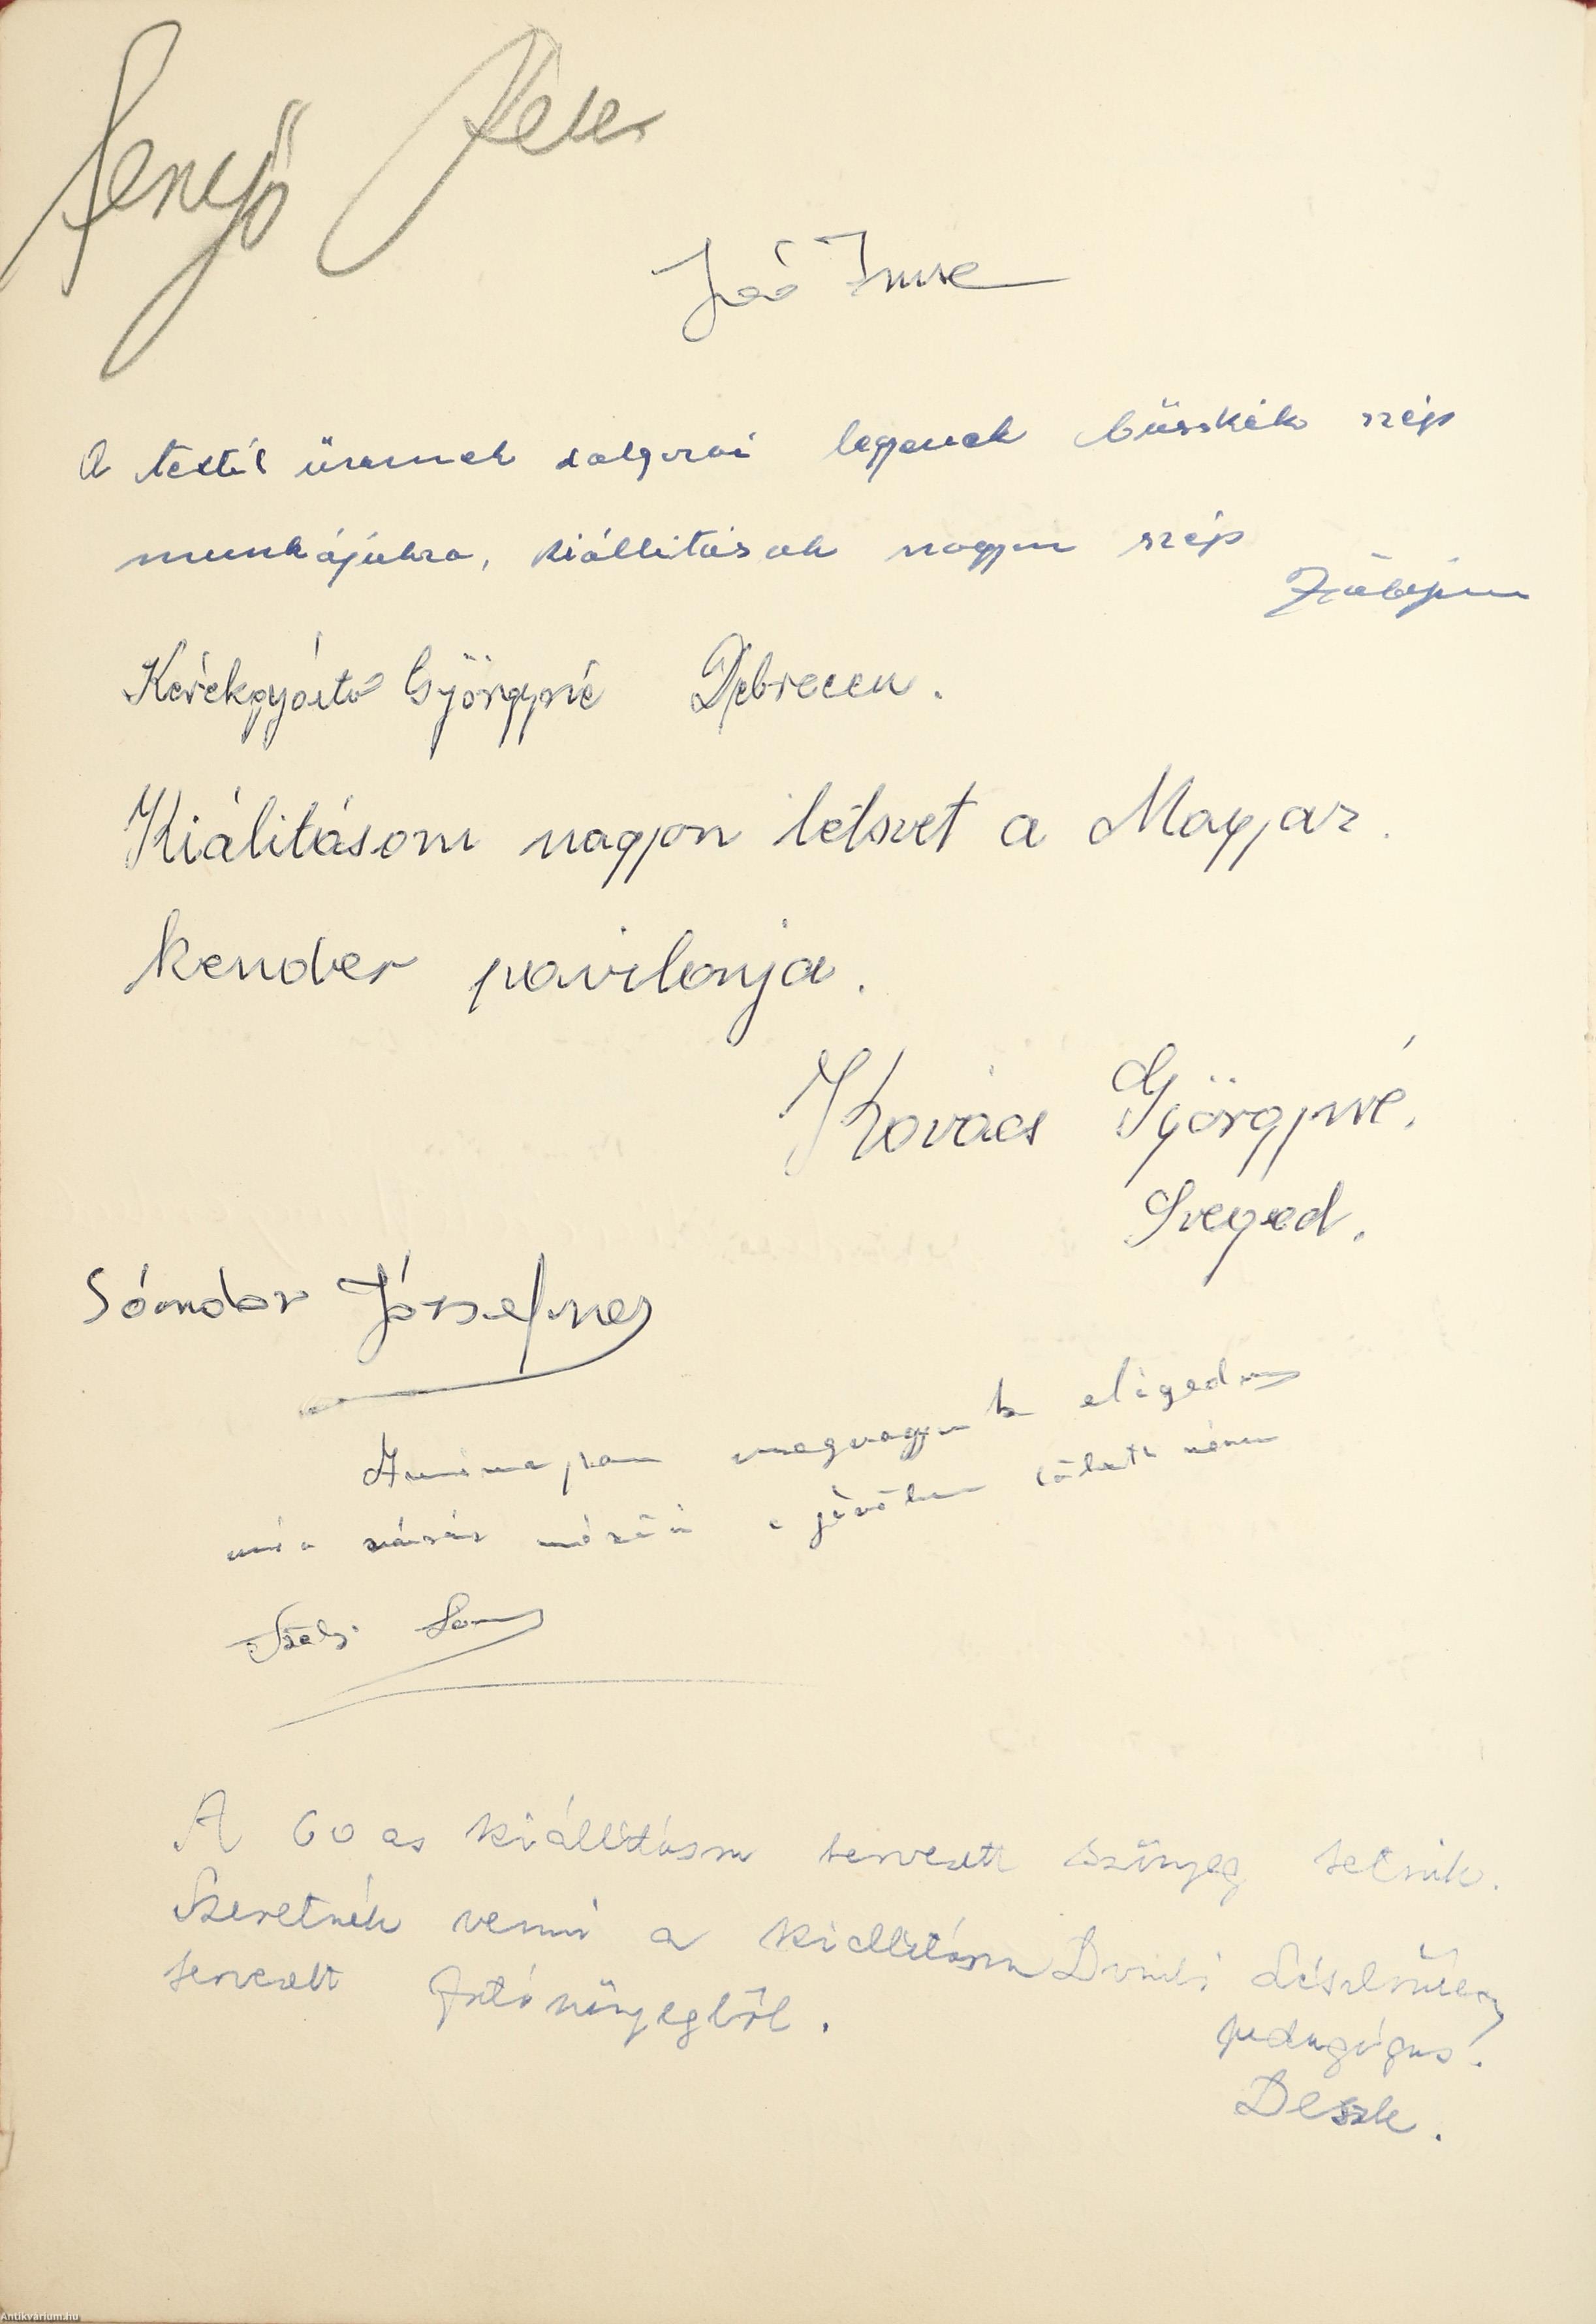 Fenyő Peter
Joó Imre
A textil üzemek dolgozói legyenek büszkék szép
munkájukra, kiállitásuk nagyon szép
Kerékgyártó Györgyné Debrecen.
Kiálitásom nagyon tetszet a Magyar.
kender pavilonja.
Kovács Györgyné.
Szeged.
Sándor Józsefné
megvagyunk elégedve
a jövőben
A 60 as kiállitáson tervezett szőnyeg tetszik.
Szeretnék venni a kiállitáson
tervezett futószőnyegből.
pedagógus.
Deszk.
Antikvarium.hu